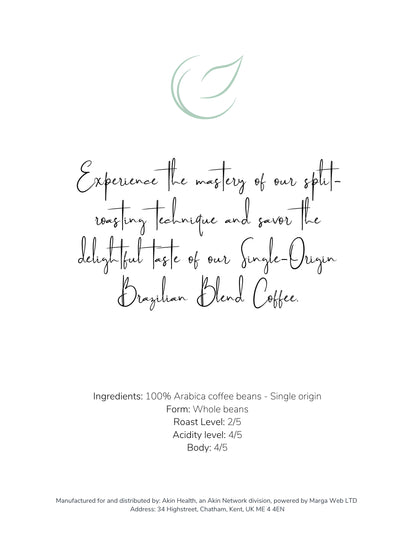 Experience the mastery of our split-
roasting technique and savor the
delightful taste of our Single-Origin
Brazilian Blend Coffee.
Ingredients: 100% Arabica coffee beans - Single origin
Form: Whole beans
Roast Level: 2/5
Acidity level: 4/5
Body: 4/5
Manufactured for and distributed by: Akin Health, an Akin Network division, powered by Marga Web LTD
Address: 34 Highstreet, Chatham, Kent, UK ME 4 4EN